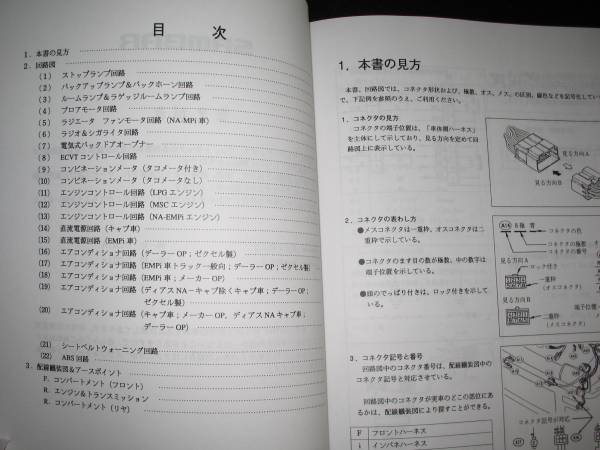 目　次
1．本書の見方
2．回路図
(1)　ストップランプ回路
(2)　バックアップランプ&バックホーン回路
(3)　ルームランプ&ラゲッジルームランプ回路
(4)　ブロアモータ回路
(5)　ラジエータ　ファンモータ回路（NA-MPi車）
(6)　ラジオ&シガライタ回路
(7)　電気式バックドアオープナー
(8)　ECVTコントロール回路
(9)　コンビネーションメータ（タコメータ付き）
(10)　コンビネーションメータ（タコメータなし）
(11)　エンジンコントロール回路（LPGエンジン）
(12)　エンジンコントロール回路（MSCエンジン）
(13)　エンジンコントロール回路（NA-EMPiエンジン）
(14)　直流電源回路（キャブ車）
(15)　直流電源回路（EMPi車）
(16)　エアコンディショナ回路（デーラーOP；ゼクセル製）
(17)　エアコンディショナ回路（EMPi車トラック一般向；デーラーOP；ゼクセル製）
(18)　エアコンディショナ回路（EMPi車；メーカーOP）
(19)　エアコンディショナ回路（ディアスNA－キャブ除くキャブ車；デーラーOP；
ゼクセル製）
(20)　エアコンディショナ回路（キャブ車；メーカーOP，ディアスNAキャブ車；
デーラーOP）
(21)　シートベルトウォーニング回路
(22)　ABS回路
3．配線艤装図&アースポイント
F．コンパートメント（フロント）
R．エンジン&トランスミッション
R．コンパートメント（リヤ）
1．本書の見方
本書，回路図では，コネクタ形状および，極数，オス，メス，の区別，線色などを記号化してい
で，下記例を参照のうえ，ご利用ください。
1．コネクタの見方
コネクタの端子位置は，「車体側ハーネス」
を主体にして示しており，見る方向を定めて回
路図上に表示している。
見る方向A
見る方向B
2．コネクタの表わし方
●メスコネクタは一重枠，オスコネクタは二
重枠で示している。
●コネクタのます目の数が極数，中の数字は
端子位置を示している。
●頭のでっぱり付きは，ロック付きを示して
い
コネクタの色
コネクタの極数
コネクタの番号
見る方向A
ロック付き
一重枠
（メスコネクタ）
見る方向B
端子位置
二重枠
（メスコネク
3．コネクタ記号と番号
回路図中のコネクタ番号は，配線艤装図中の
コネクタ記号と対応させている。
コネクタが実車のどこの部位にあ
るかは，配線艤装図により探すことができる。
コネクタ記号が対応
F　フロントハーネス
i　インパネハーネス